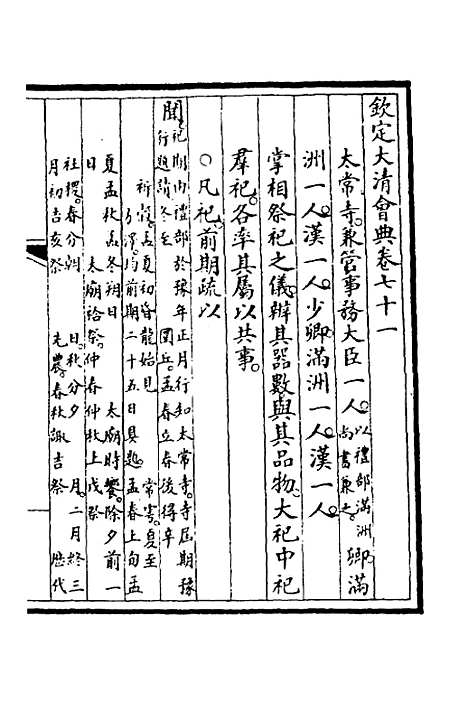 欽定大清會典卷七十一
太常寺。兼管事務大臣一人。以禮部滿洲尚書兼之。卿滿
洲一人。漢一人。少卿滿洲一人。漢一人。
掌相祭祀之儀。辨其器數與其品物。大祀中祀
羣祀。各率其屬以共事。
○凡祀。前期疏以
聞祀期由禮部於豫年正月行知太常寺。寺屆期豫
行題請。冬至 圜丘。孟春立春後得辛
祈穀。孟夏初旬龍始見 常雩。夏至
方澤。均前期二十五日具題。孟春上旬孟
夏孟秋孟冬朔日 太廟時饗。除夕前一
日 太廟祫祭。仲春仲秋上戊祭
社稷。春分朝 日。秋分夕 月。二月終三
月初吉亥祭 先農。春秋諏吉祭 歷代